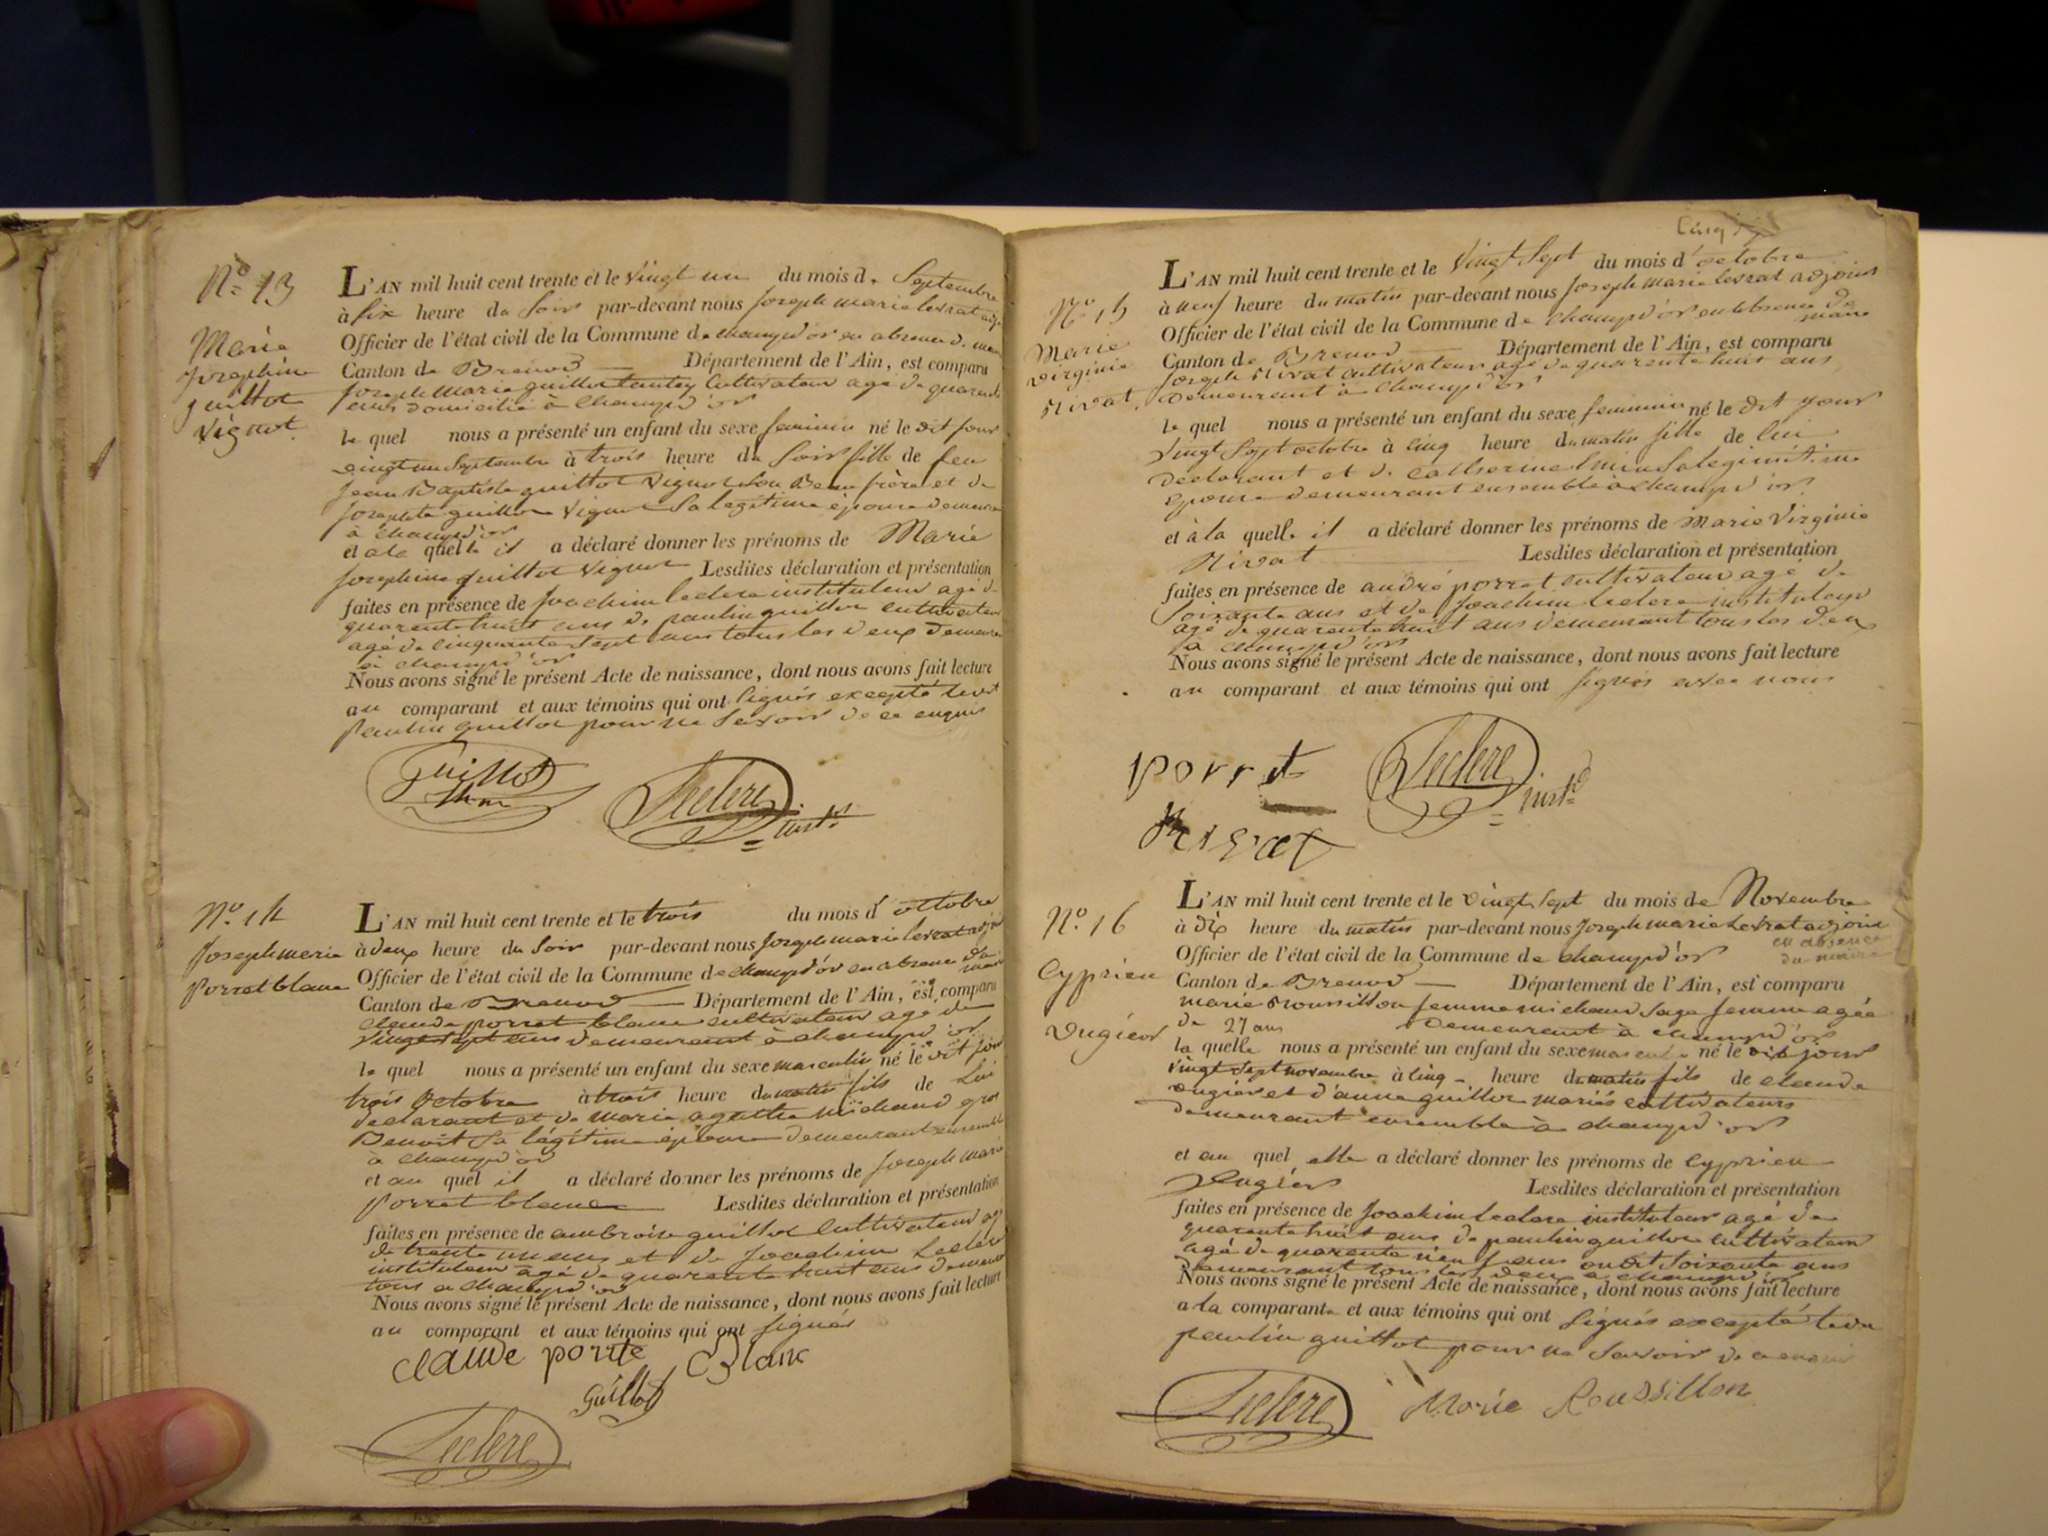 N.o 13
Marie
Josephine
guillot
Vignot.
L'AN mil huit cent trente et le Vingt un du mois de Septembre
à six heure du Soir par-devant nous Joseph marie levrat adj
Officier de l'état civil de la Commune de champd'or en absence du
Canton de Brenod Département de l'Ain, est comparu
Joseph Marie guillot Cultivateur agé de quarente
ans domicilié à Champd'or
le quel nous a présenté un enfant du sexe feminin né le dit jour
vingt un Septembre à trois heure du Soir fille de feu
Jean Baptiste guillot Vignot Son Beau frère et de
Josephte guillot Vignot Sa legitime épouse
à Champd'or
et a la quelle il a déclaré donner les prénoms de Marie
Josephine guillot Vignot Lesdites déclaration et présentation
faites en présence de Joachim leclere instituteur agé de
quarente huit ans de paulin guillot cultivateur
agé de Cinquante Sept ans tous les deux
à Champd'or
Nous avons signé le présent Acte de naissance, dont nous avons fait lecture
au comparant et aux témoins qui ont Signés excepté ledit
paulin guillot pour ne Savoir de ce enquis
Guillot
Leclere inst.r
N.o 14
Joseph marie
Porret blanc
L'AN mil huit cent trente et le trois du mois d'octobre
à deux heure du Soir par-devant nous Joseph marie levrat
Officier de l'état civil de la Commune de champd'or en absence du
Canton de Brenod Département de l'Ain, est comparu
claude porret blanc cultivateur agé de
vingt sept ans demeurant à champd'or
le quel nous a présenté un enfant du sexe masculin né le dit jour
trois octobre à trois heure du matin fils de lui
declarant et de marie agathe michaud gros
Benoit Sa légitime épouse demeurant ensemble
à Champd'or
et au quel il a déclaré donner les prénoms de Joseph marie
Porret blanc Lesdites déclaration et présentation
faites en présence de ambroise guillot Cultivateur
de trente un ans et de Joachim Leclere
instituteur agé de quarente huit ans
tous a champd'or
Nous avons signé le présent Acte de naissance, dont nous avons fait lecture
au comparant et aux témoins qui ont signés
claude porrte Blanc
guillot
Leclere
N.o 15
Marie
virginie
Nivat.
L'AN mil huit cent trente et le Vingt Sept du mois d'octobre
à neuf heure du matin par-devant nous Joseph Marie levrat adjoint
Officier de l'état civil de la Commune de champd'or en absence de
maire
Canton de Brenod Département de l'Ain, est comparu
Joseph Nivat cultivateur agé de quarente huit ans
demeurant à champd'or
le quel nous a présenté un enfant du sexe feminin né le dit jour
vingt Sept octobre à cinq heure du matin fille de lui
declarant et de catherine Sa legimitime
epouse demeurant ensemble à champd'or
et à la quelle il a déclaré donner les prénoms de Marie Virginie
Nivat Lesdites déclaration et présentation
faites en présence de andré porret cultivateur agé de
Soixante ans et de Joachim leclere instituteur
agé de quarente huit ans demeurant tous les deux
à champd'or
Nous avons signé le présent Acte de naissance, dont nous avons fait lecture
au comparant et aux témoins qui ont signés avec nous
porret
Leclere inst.r
Nivat
N.o 16
Cyprien
Dugier
L'AN mil huit cent trente et le vingt Sept du mois de Novembre
à dix heure du matin par-devant nous Joseph marie Levrat adjoint
en absence
du maire
Officier de l'état civil de la Commune de champd'or
Canton de Brenod Département de l'Ain, est comparu
marie Roussillon femme michaud Sage femme agée
de 27 ans demeurant à champd'or
la quelle nous a présenté un enfant du sexe masculin né le dit jour
vingt Sept novembre à cinq heure du matin fils de claude
Dugier et d'anne guillot mariés cultivateurs
demeurant ensemble à champd'or
et au quel elle a déclaré donner les prénoms de Cyprien
Dugier Lesdites déclaration et présentation
faites en présence de Joachim leclere instituteur agé de
quarente huit ans de paulin guillot cultivateur
agé de quarente neuf ans ou dit Soixante ans
demeurant tous les deux a champd'or
Nous avons signé le présent Acte de naissance, dont nous avons fait lecture
a la comparante et aux témoins qui ont Signés excepté ledit
paulin guillot pour ne Savoir de ce enquis
Leclere
Marie Roussillon